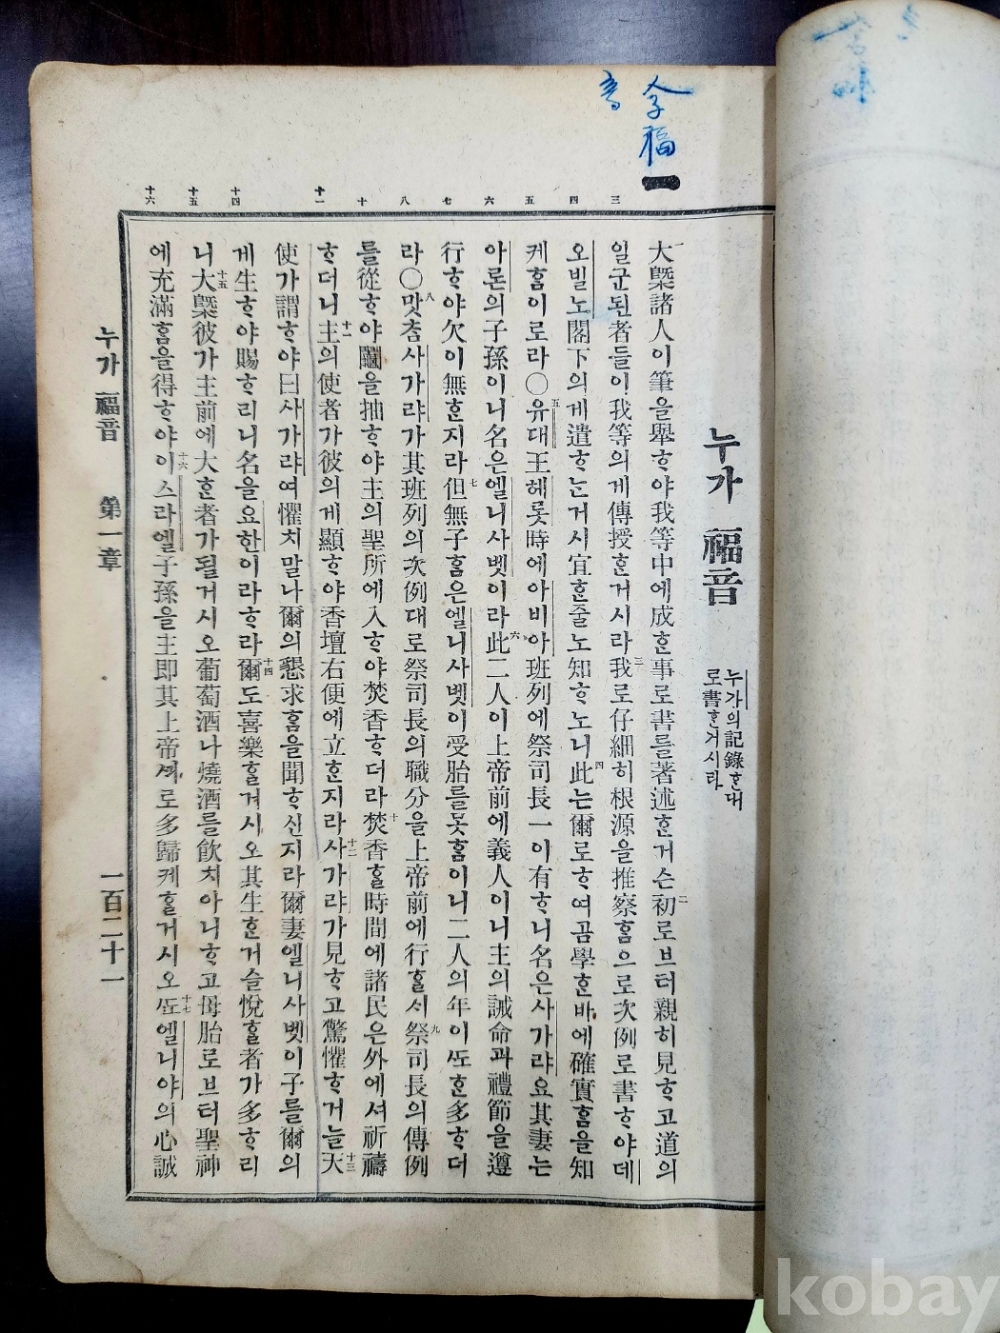 누가 福音
누가의記錄ᄒᆞᆫ대
로書ᄒᆞᆫ거시라
一
大槩諸人이筆을舉ᄒᆞ야我等中에成ᄒᆞᆫ事로書를著述ᄒᆞᆫ거슨二初로브터親히見ᄒᆞ고道의
일군된者들이我等의게傳授ᄒᆞᆫ거시라三我로仔細히根源을推察ᄒᆞᆷ으로次例로書ᄒᆞ야데
오빌노閣下의게遣ᄒᆞ는거시宜ᄒᆞᆫ줄노知ᄒᆞ노니四此는爾로ᄒᆞ여곰學ᄒᆞᆫ바에確實ᄒᆞᆷ을知
케ᄒᆞᆷ이로라〇五유대王헤롯時에아비아班列에祭司長一이有ᄒᆞ니名은사가랴요其妻는
아론의子孫이니名은엘니사벳이라六此二人이上帝前에義人이니主의誡命과禮節을遵
行ᄒᆞ야欠이無ᄒᆞᆫ지라七但無子ᄒᆞᆷ은엘니사벳이受胎를못ᄒᆞᆷ이니二人의年이ᄯᅩᄒᆞᆫ多ᄒᆞ더
라〇八맛ᄎᆞᆷ사가랴가其班列의次例대로祭司長의職分을上帝前에行ᄒᆞᆯ시九祭司長의傳例
를從ᄒᆞ야鬮을抽ᄒᆞ야主의聖所에入ᄒᆞ야焚香ᄒᆞ더라十焚香ᄒᆞᆯ時間에諸民은外에셔祈禱
ᄒᆞ더니十一主의使者가彼의게顯ᄒᆞ야香壇右便에立ᄒᆞᆫ지라十二사가랴가見ᄒᆞ고驚懼ᄒᆞ거늘十三天
使가謂ᄒᆞ야曰사가랴여懼치말나爾의懇求ᄒᆞᆷ을聞ᄒᆞ신지라爾妻엘니사벳이子를爾의
게生ᄒᆞ야賜ᄒᆞ리니名을요한이라ᄒᆞ라十四爾도喜樂ᄒᆞᆯ거시오其生ᄒᆞᆫ거슬悅ᄒᆞᆯ者가多ᄒᆞ리
니十五大槩彼가主前에大ᄒᆞᆫ者가될거시오葡萄酒나燒酒를飮치아니ᄒᆞ고母胎로브터聖神
에充滿ᄒᆞᆷ을得ᄒᆞ야十六이스라엘子孫을主即其上帝ᄭᅴ로多歸케ᄒᆞᆯ거시오十七ᄯᅩ엘니야의心誠
三
四
五
六
七
八
十
十一
十四
十五
十六
누가 福音 第一章 一百二十一
kobay